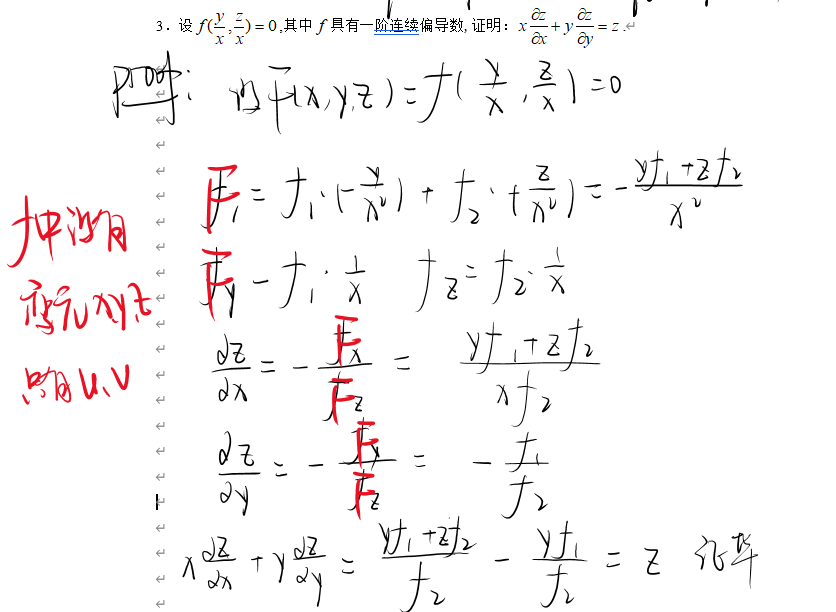 3. 设 f(y/x, z/x) = 0 ,其中 f 具有一阶连续偏导数, 证明: x ∂z/∂x + y ∂z/∂y = z .
proof: 设F(x,y,z) = f(y/x, z/x) = 0
F₁ = f₁·(-y/x²) + f₂·(z/x²) = - (yf₁+zf₂)/x²
Fy - f₁·1/x  fz = f₂·1/x
∂z/∂x = - Fx/Fz = (yf₁+zf₂)/(xf₂)
∂z/∂y = - Fy/Fz = - f₁/f₂
x ∂z/∂x + y ∂z/∂y = (yf₁+zf₂)/f₂ - yf₁/f₂ = z 证毕
f中没有
变元x,y,z
只有u、v